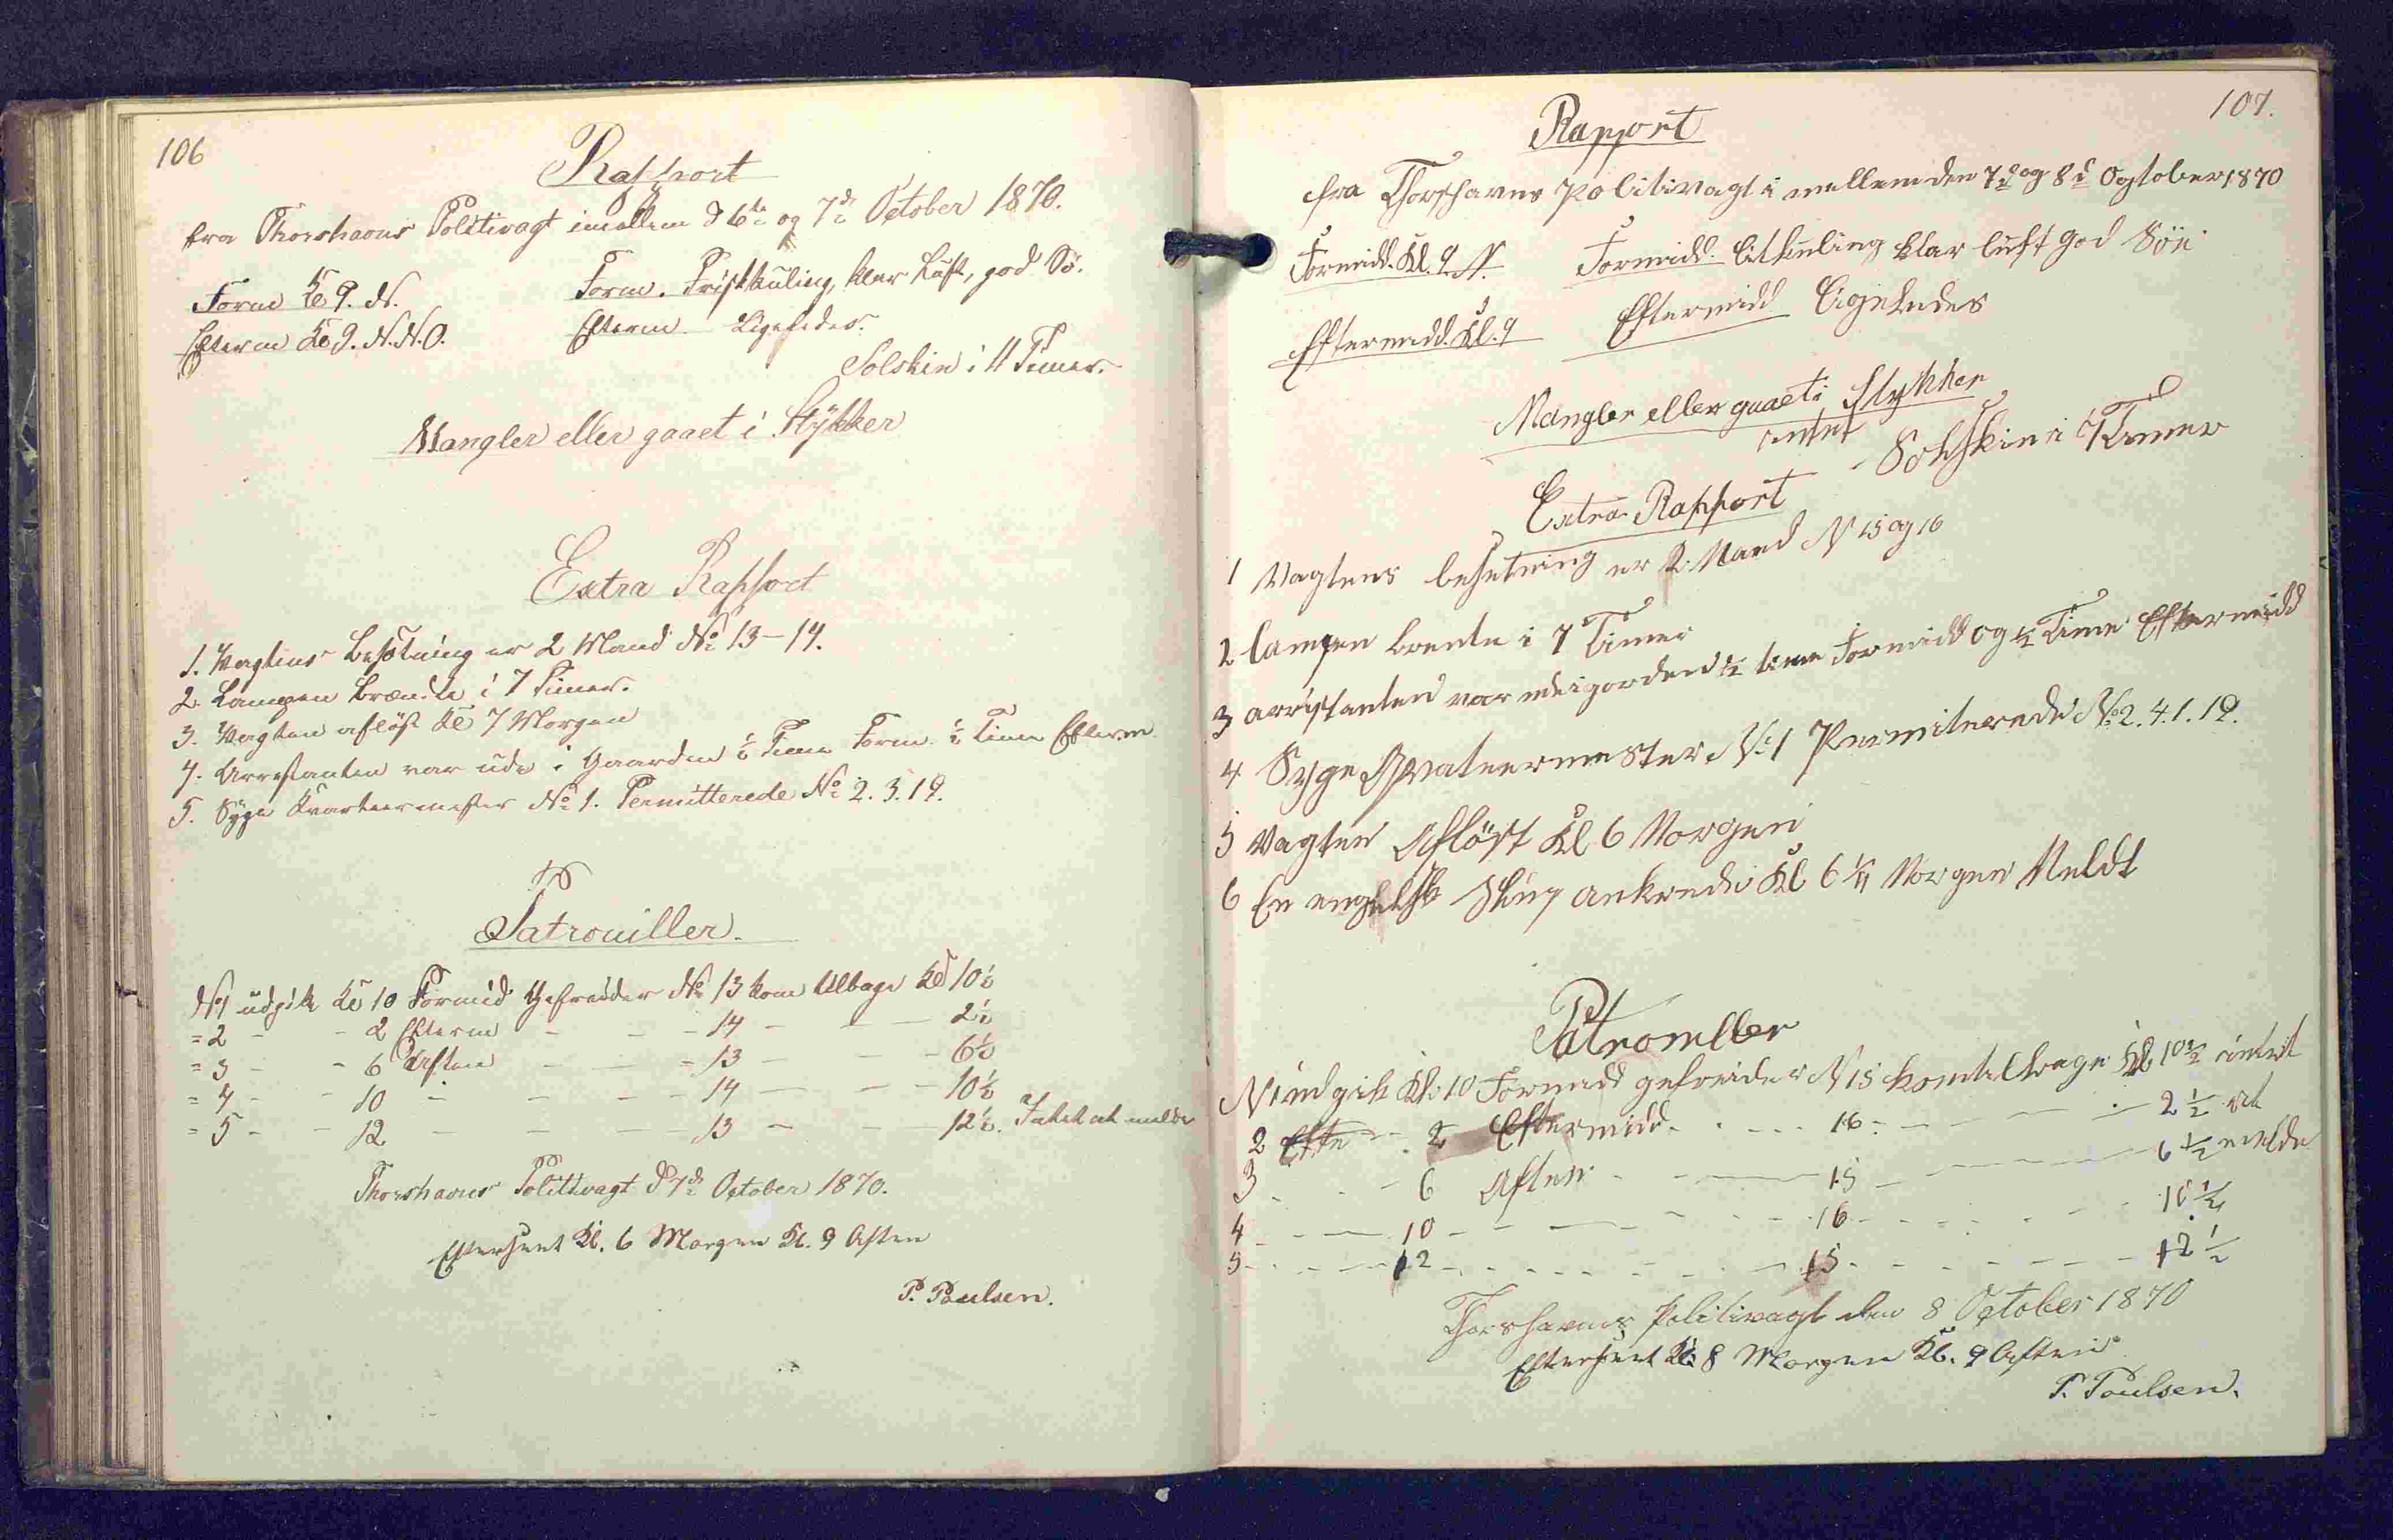 106
Rapport
fra Thorshavns Politivagt imellem d 6te og 7de October 1870.
Form Kl 9. N. Form. Friskkuling, klar Luft, god Sö.
Efterm Kl 9. N.N.O. Efterm Ligeledes.
Solskin i 4 Timer.
Mangler eller gaaet i Stykker
Extra Rapport
1. Vagtens Besætning er 2 Mand No 13-14.
2. Lampen brændte i 7 Timer.
3. Vagten aflöst Kl 7 Morgen
4. Arrestanten var ude i Gaarden ½ Time Form. ½ Time Efterm
5. Syge Kvarteermester No 1. Permitterede No 2. 3. 19.
Patrouiller.
No 1 udgik Kl 10 Formid Gefreider No 13 kom tilbage Kl 10½
= 2 - - 2 Efterm - - - 14 - - - 2½
= 3 - - 6 Aften - - - 13 - - - 6½
= 4 - - 10 - - - - 14 - - - 10½
= 5 - - 12 - - - 13 - - 12½. Intet at melde
Thorshavns Politivagt d 7de October 1870.
Efterseet Kl. 6 Morgen Kl. 9 Aften
P. Poulsen.
107.
Rapport
fra Thorshavns Politivagt i mellem den 7de og 8de October 1870
Formidd. Kl. 9 N. Formidd. Litkuling klar luft god Söe
Eftermidd. Kl. 9 Eftermidd Ligeledes
Mangler eller gaaet i Stykker
intet
Solskin i Timer
Extra Rapport
1 Vagtens besetning er 2 Mand N 15 og 16
2 lampen brente i 7 Timer
3 arristanten var ude i gorden ½ time Formidd og ½ Time Eftermidd
4 Syge Qvateermester No 1 Permiterede No 2. 4. 1. 19.
5 Vagten Aflöst Kl 6 Morgen
6 En engelsk Slup ankrede Kl 6 ¼ Morgen Meldt
Patrouller
N 1 udgik Kl. 10 Formidd gefreider N 15 kom tilbage Kl. 10½ intet
2 Efte - 2 Eftermidd - - - 16 - - - 2½ at
3 - - 6 Aften - - 15 - - - 6½ melde
4 - - 10 - - - - 16 - - - 10½
5 - - 12 - - - - 15 - - - 12½
Thorshavns Politivagt den 8 October 1870
Efterseet Kl 8 Morgen Kl. 9 Aften
P. Poulsen.